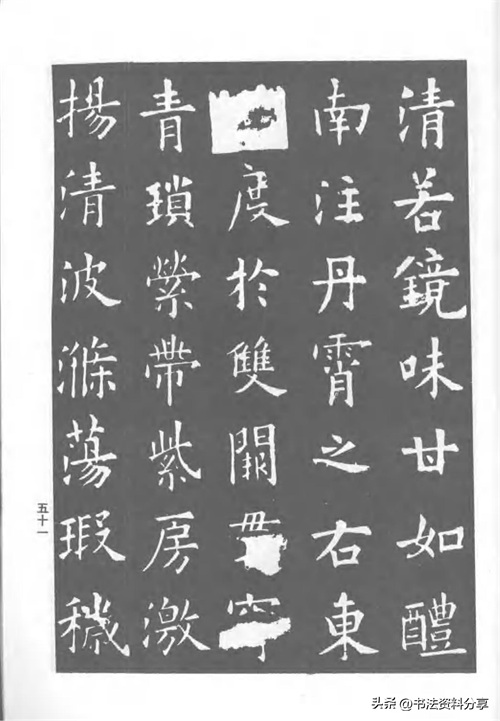 清若鏡味甘如醴
南注丹霄之右東
度於雙闕
青瑣縈帶紫房激
揚清波滌蕩瑕穢
五十一
头条 @书法资料分享